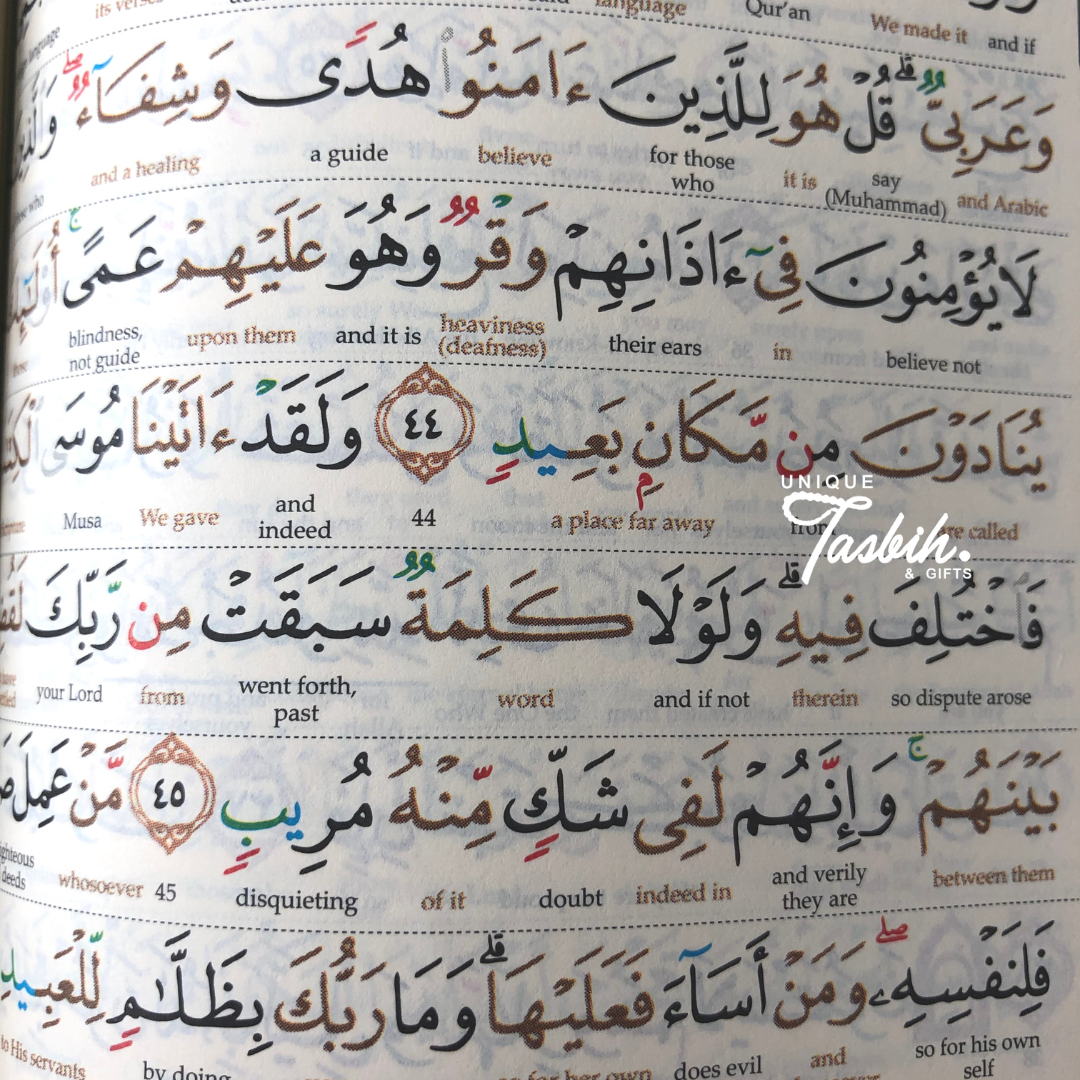 its verses language Qur'an We made it and if
وَعَرَبِىٌّ ۗ قُلْ هُوَ لِلَّذِينَ ءَامَنُوا۟ هُدًى وَشِفَآءٌ ۖ
and Arabic say (Muhammad) it is for those who believe a guide and a healing
لَا يُؤْمِنُونَ فِىٓ ءَاذَانِهِمْ وَقْرٌ وَهُوَ عَلَيْهِمْ عَمًى ۚ
believe not in their ears heaviness (deafness) and it is upon them blindness, not guide
يُنَادَوْنَ مِن مَّكَانٍۭ بَعِيدٍ ٤٤ وَلَقَدْ ءَاتَيْنَا مُوسَى
are called from a place far away 44 and indeed We gave Musa
UNIQUE
Tasbih.
& GIFTS
فَٱخْتُلِفَ فِيهِ ۗ وَلَوْلَا كَلِمَةٌ سَبَقَتْ مِن رَّبِّكَ
so dispute arose therein and if not word went forth, past from your Lord
بَيْنَهُمْ ۚ وَإِنَّهُمْ لَفِى شَكٍّ مِّنْهُ مُرِيبٍ ٤٥ مَّنْ عَمِلَ
between them and verily they are indeed in doubt of it disquieting 45 whosoever deeds
فَلِنَفْسِهِۦ ۖ وَمَنْ أَسَآءَ فَعَلَيْهَا ۗ وَمَا رَبُّكَ بِظَلَّـٰمٍ لِّلْعَبِيدِ
so for his own self and does evil so for her own by doing to His servants